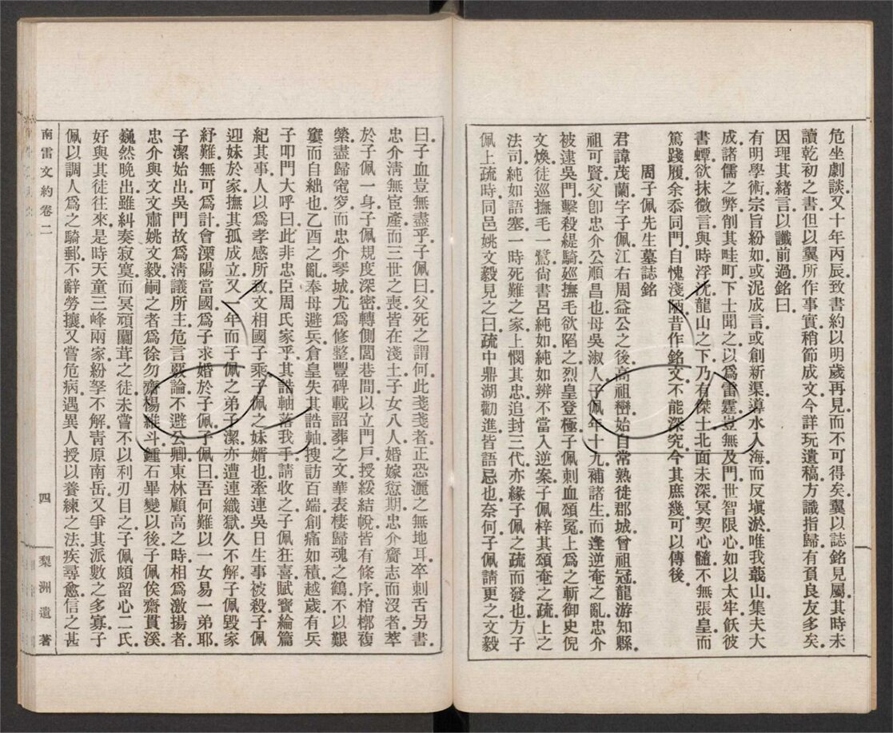 危坐劇談又十年丙辰致書約以明歲再見而不可得矣翼以誌銘見屬其時未
讀乾初之書但以翼所作事實稍節成文今詳玩遺稿方識指歸有負良友多矣
因理其緒言以讖前過銘曰
有明學術宗旨紛如或泥成言或創新渠導水入海而反塡淤唯我蕺山集夫大
成諸儒之弊削其畦町下士聞之以爲雷霆豈無及門世智限心如以太牢飫彼
書蟫欲抹微言與時浮沈龍山之下乃有傑士北面未深冥契心髓不無張皇而
篤踐履余忝同門自愧淺陋昔作銘文不能深究今其庶幾可以傳後
周子佩先生墓誌銘
君諱茂蘭字子佩江右周益公之後高祖巒始自常熟徙郡城曾祖冠龍游知縣
祖可賢父卽忠介公順昌也母吳淑人子佩年十九補諸生而逢逆奄之亂忠介
被逮吳門擊殺緹騎廵撫毛欲陷之烈皇登極子佩刺血頌冤上爲之斬御史倪
文煥徒巡撫毛一鷺尙書呂純如純如辨不當入逆案子佩梓其頌奄之疏上之
法司純如語塞一時死難之家上憫其忠追封三代亦緣子佩之疏而發也方子
佩上疏時同邑姚文毅見之曰疏中鼎湖勸進皆語忌也奈何子佩請更之文毅
曰子血豈無盡乎子佩曰父死之謂何此戔戔者正恐灑之無地耳卒刺舌另書
忠介淸無宦產而三世之喪皆在淺土子女八人婚嫁愆期忠介齎志而沒者萃
於子佩一身子佩規度深密轉側閭巷間以立門戶授綏結帨皆有條序棺槨複
縈盡歸窀穸而忠介塋城尤爲修整豐碑載詔葬之文華表棲歸魂之鶴不以艱
窶而自絀也乙酉之亂奉母避兵倉皇失其誥軸搜訪百端創痛如積越歲有兵
子叩門大呼曰此非忠臣周氏家乎其誥軸落我手請收之子佩狂喜賦寶綸篇
紀其事人以爲孝感所致文相國子乘子佩之妹婿也牽連吳日生事被殺子佩
迎妹於家撫其孤成立又一年而子佩之弟子潔亦遭連織獄久不解子佩毀家
紓難無可爲計會溧陽當國爲子求婚於子佩子佩曰吾何難以一女易一弟耶
子潔始出吳門故爲淸議所主危言覈論不避公卿東林顧高之時相爲激揚者
忠介與文文肅姚文毅嗣之者爲徐勿齋楊維斗鍾石畢變以後子佩俟齋貫溪
巍然晚出雖糾奏寂寞而冥頑闒茸之徒未嘗不以利刃目之子佩頗留心二氏
好與其徒往來是時天童三峰兩家紛拏不解靑原南岳又爭其派數之多寡子
佩以調人爲之騎郵不辭勞攘又嘗危病遇異人授以養練之法疾尋愈信之甚
南雷文約卷二
四
梨洲遺著